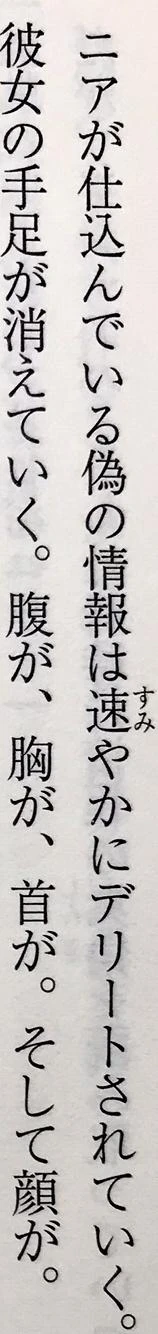 ニアが仕込んでいる偽の情報は速やかにデリートされていく。
彼女の手足が消えていく。腹が、胸が、首が。そして顔が。